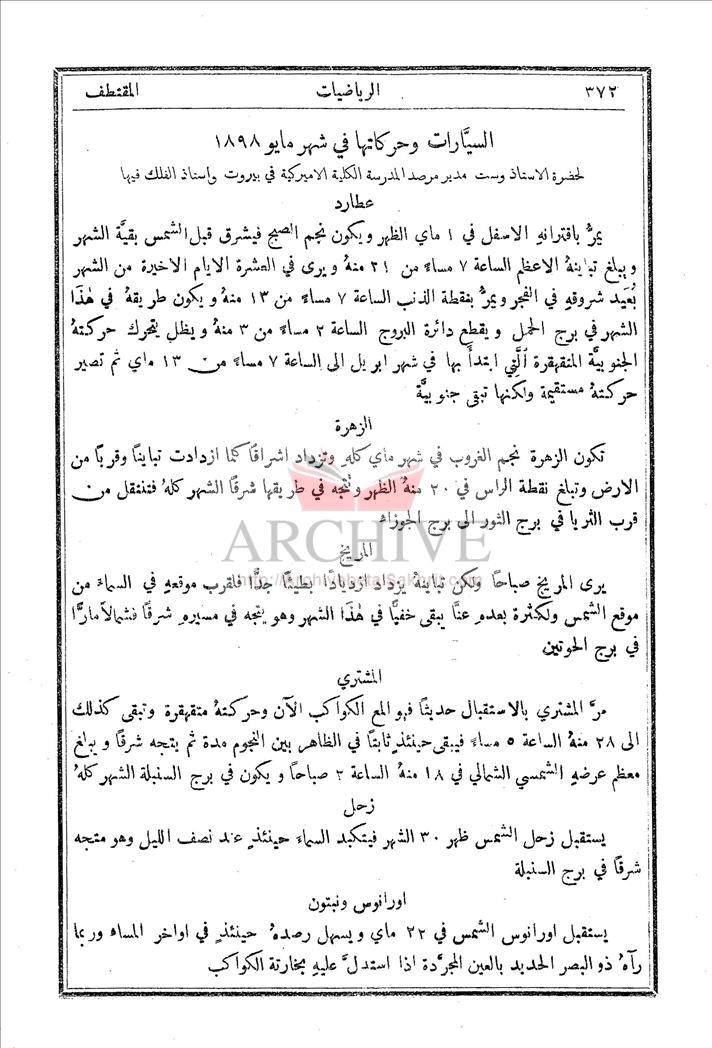 ٣٧٢ الرياضيات المقتطف
السيَّارات وحركاتها في شهر مايو ١٨٩٨
لحضرة الاستاذ وست مدير مرصد المدرسة الكلية الاميركية في بيروت واستاذ الفلك فيها
عطارد
يمرُّ باقترانهِ الاسفل في ١ ماي الظهر ويكون نجم الصبح فيشرق قبل الشمس بقيَّة الشهر
ويبلغ تباينهُ الاعظم الساعة ٧ مساءً من ٢١ منهُ ويرى في العشرة الايام الاخيرة من الشهر
بُعَيد شروقهِ في الفجر ويمرُّ بنقطة الذنب الساعة ٧ مساءً من ١٣ منهُ ويكون طريقهُ في هٰذَا
الشهر في برج الحمل ويقطع دائرة البروج الساعة ٢ مساءً من ٣ منهُ ويظل يتحرك حركتهُ
الجنوبيَّة المتقهقرة ٱلَّتِي ابتدأَ بها في شهر ابريل الى الساعة ٧ مساءً من ١٣ ماي ثم تصير
حركتهُ مستقيمة ولكنها تبقى جنوبيَّة
الزهرة
تكون الزهرة نجم الغروب في شهر ماي كلهِ وتزداد اشراقًا كما ازدادت تباينًا وقربًا من
الارض وتبلغ نقطة الراس في ٢٠ منهُ الظهر وتتجه في طريقها شرقًا الشهر كلهُ فتنتقل من
قرب الثريا في برج الثور الى برج الجوزاء
ARCHIVE
المريخ
http://Archivebeta.Sakhrit.com
يرى المريخ صباحًا ولكن تباينهُ يزداد ازديادًا بطيئًا جدًّا فلقرب موقعهِ في السماء من
موقع الشمس ولكثرة بعدهِ عنَّا يبقى خفيًّا في هٰذَا الشهر وهو يتجه في مسيرهِ شرقًا فشمالًا مارًّا
في برج الحوتين
المشتري
مرَّ المشتري بالاستقبال حديثًا فهو المع الكواكب الآن وحركتهُ متقهقرة وتبقى كذلك
الى ٢٨ منهُ الساعة ٥ مساءً فيبقى حينئذٍ ثابتًا في الظاهر بين النجوم مدة ثم يتجه شرقًا ويبلغ
معظم عرضهِ الشمسي الشمالي في ١٨ منهُ الساعة ٢ صباحًا ويكون في برج السنبلة الشهر كلهُ
زحل
يستقبل زحل الشمس ظهر ٣٠ الشهر فيتكبد السماء حينئذٍ عند نصف الليل وهو متجه
شرقًا في برج السنبلة
اورانوس ونبتون
يستقبل اورانوس الشمس في ٢٢ ماي ويسهل رصدهُ حينئذٍ في اواخر المساء وربما
رآهُ ذو البصر الحديد بالعين المجرَّدة اذا استدلَّ عليهِ بخارتة الكواكب